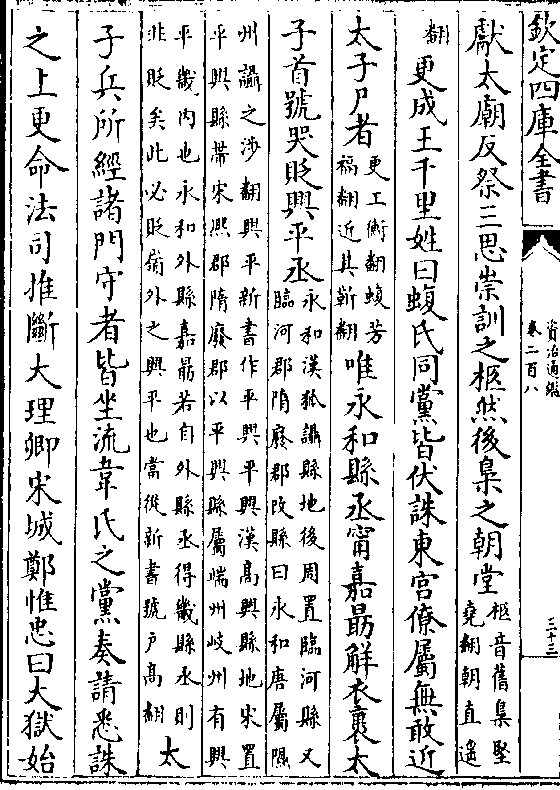 欽定四庫全書
資治通鑑
卷二百八
三十三
獻太廟及祭三思崇訓之柩然後梟之朝堂柩音舊梟堅
堯翻朝直遙
翻更成王千里姓曰蝮氏同黨皆伏誅東宮僚屬無敢近
太子尸者更工衡翻蝮芳
福翻近其靳翻唯永和縣丞甯嘉勗解衣裹太
子首號哭貶興平丞永和漢狐讘縣地後周置臨河縣又
臨河郡隋廢郡改縣曰永和唐屬隰
州讘之涉翻興平新書作平興平興漢高興縣地宋置
平興縣帶宋熙郡隋廢郡以平興縣屬端州岐州有興
平畿内也永和外縣嘉勗若自外縣丞得畿縣丞則
非貶矣此必貶嶺外之興平也當從新書號户高翻太
子兵所經諸門守者皆坐流韋氏之黨奏請悉誅
之上更命法司推斷大理卿宋城鄭惟忠曰大獄始